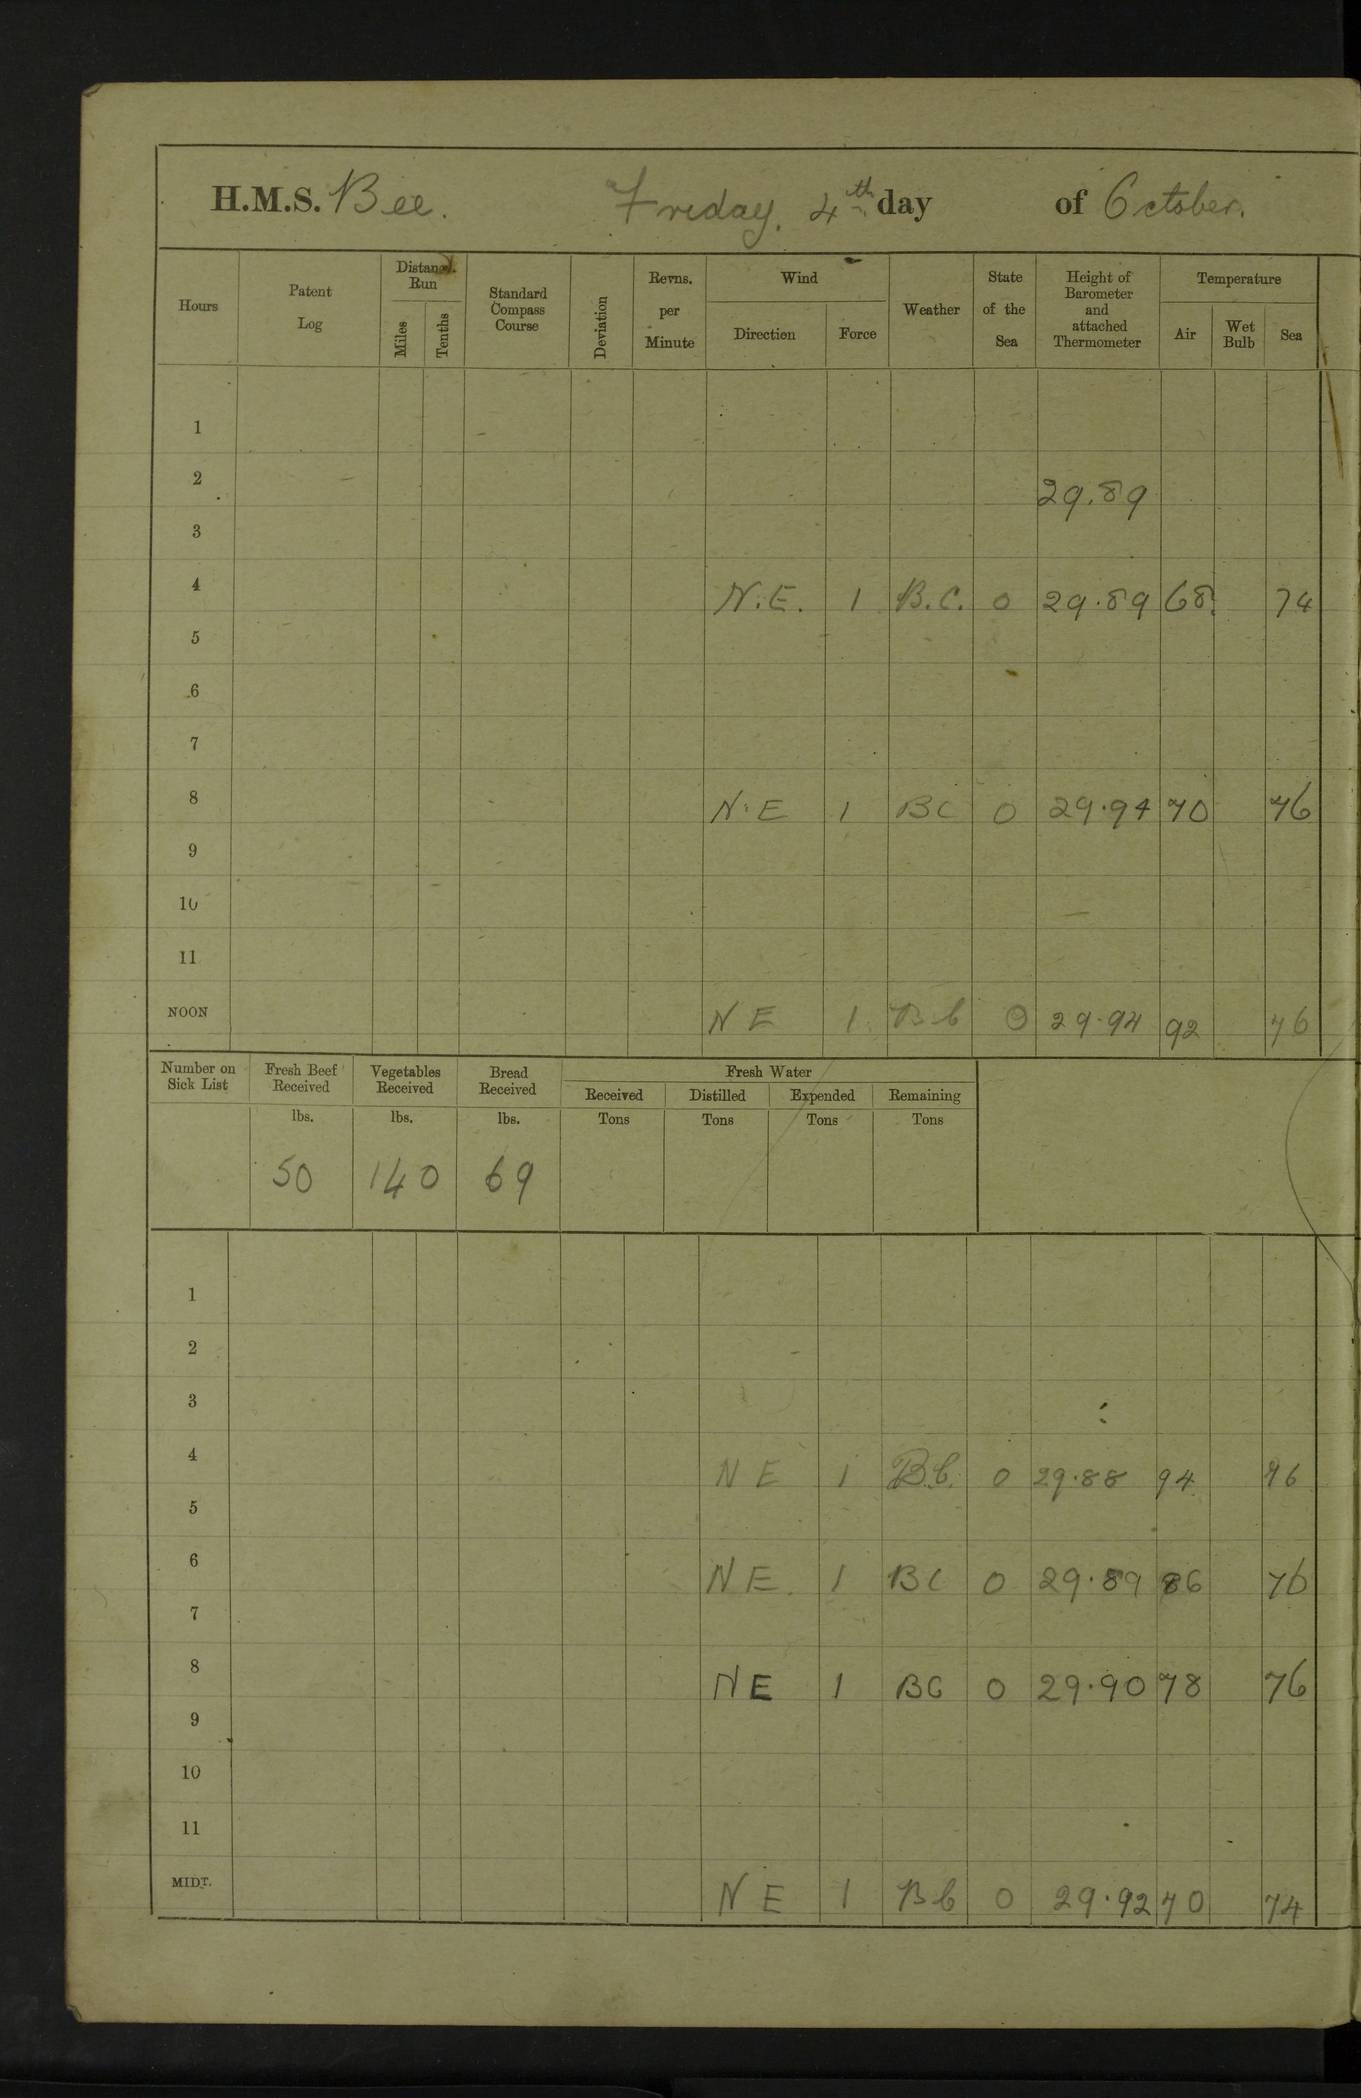 H.M.S. Bee. Friday, 4th day of October.
Hours Patent Log Distance Run Miles Tenths Standard Compass Course Deviation Revns. per Minute Wind Direction Force Weather State of the Sea Height of Barometer and attached Thermometer Temperature Air Wet Bulb Sea
1
2 29.89
3
4 N.E. 1 B.C. 0 29.89 68 74
5
6
7
8 N.E 1 BC 0 29.94 70 76
9
10
11
NOON N E 1 B b 0 29.94 92 76
Number on Sick List Fresh Beef Received Vegetables Received Bread Received Fresh Water
Received Distilled Expended Remaining
lbs. lbs. lbs. Tons Tons Tons Tons
50 140 69
1
2
3
4 N E 1 B.b. 0 29.88 94 76
5
6 N E. 1 BC 0 29.89 86 76
7
8 N E 1 BC 0 29.90 78 76
9
10
11
MIDT. N E 1 B b 0 29.92 70 74